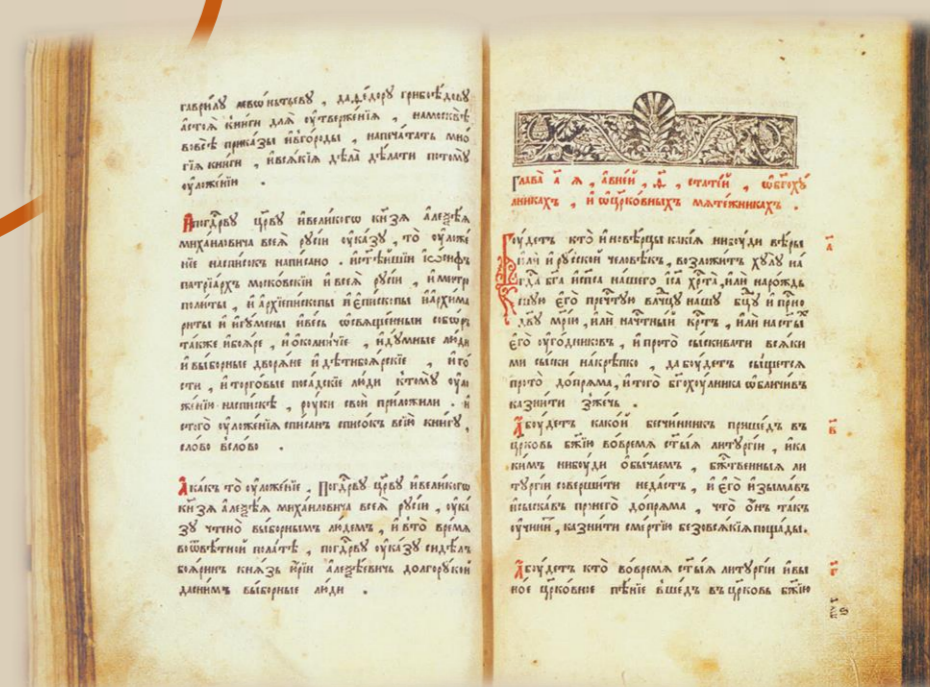 гаврилу левонътьеву , даѳедору грибоѣдову
а с тоя книги для ѹтверженїя , намосквѣ
вовсѣ приказы ивгороды , напечатать мно
гїя книги , ивсякїя дѣла дѣлати потому
ѹложенїи .
Апогдⷭ҇рву црⷭ҇ву ивеликого кнѧзѧ алеѯѣя
михаиловича всеѧ русіи ѹказу , то ѹложе
нїе насписокъ написано . исѣтѣишїи іѡсифъ
патрїархъ московскїи ивсеѧ русіи , имитро
политы , иархїепископы иепископы иархима
риты иигумены ивесь ѡсвященныи соборъ
також ибояре , иоколничїе , идумные люди
ивыборные дворяне идѣтибоярскїе , иго
сти , иторговые посадскїе люди ктому ѹло
женїю насписке , рѹки свои приложили . и
стого ѹложенїя списанъ списокъ всїю книгу ,
слово вслово .
Акакъ то ѹложенїе , погдⷭ҇рву црⷭ҇ву ивеликого
кнѧзѧ алеѯѣя михаиловича всеѧ русіи , ѹка
зу чтено выборнымъ людемъ , ивто время
воѿвѣтной полатѣ , погдⷭ҇рву ѹказу сидѣлъ
бояринъ кнѧзь юрїи алеѯѣевичь долгорукои
даснимъ выборные люди .
Глава а҃ я , авнеи , ѳ҃ , статеи , ѡбгоху
лникахъ , иѡцрковныхъ мятежникахъ .
Бѹдетъ кто иновѣрцы какїя нибуди вѣры
или ирускои человѣкъ , возложитъ хулу на
гда бга испса нашего іса хрⷭ҇та , или нарождь
шую его пречⷭ҇тую влⷣчцу нашу бцу ипрⷭ҇но
дву мрїю , или начⷭ҇тныи крⷭ҇тъ , или насты
его ѹгодниковъ , ипрото сыскивати всяки
ми сыски накрѣпко , дабѹдетъ сыщется
прото допряма , итого бгохулника ѡбличивъ
казнити зжечь .
Абѹдетъ какои бесчинникъ пришедъ въ
црковь бжїю вовремя стыя литургїи , ика
кимъ нибуди обычаемъ , бжтⷭ҇венныя ли
тургїи совершити недастъ , иего изымавъ
исыскавъ пронего допряма , что онъ такъ
ѹчинитъ , казнити смертїю безовсякїя пощады .
Абѹдетъ кто вовремя стыя литургїи ивы
ное црковное пѣнїе вшедъ въ црковь бжїю
а҃
в҃
г҃